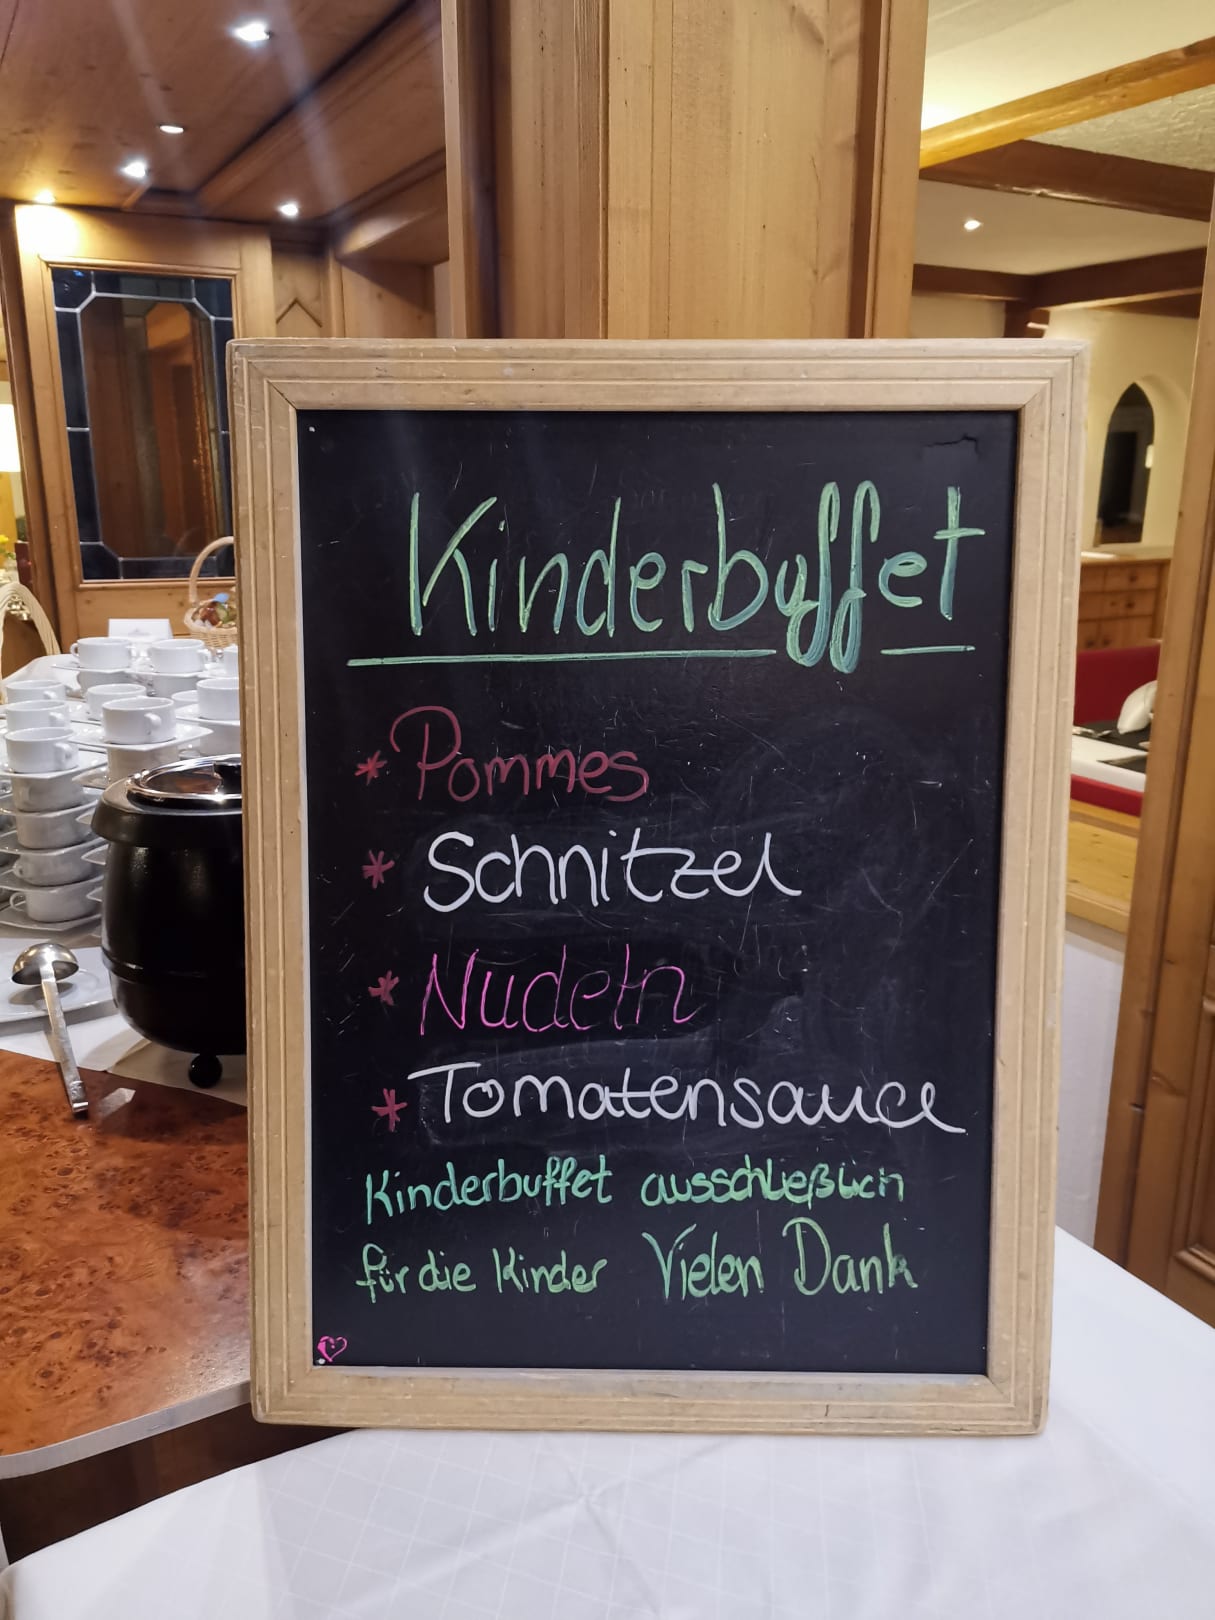 Kinderbuffet
* Pommes
* Schnitzel
* Nudeln
* Tomatensauce
Kinderbuffet ausschließlich
für die Kinder Vielen Dank